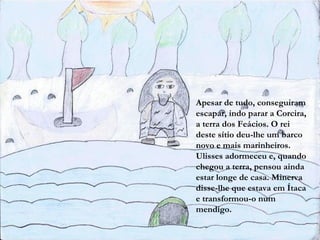 Apesar de tudo, conseguiram
escapar, indo parar a Corcira,
a terra dos Feácios. O rei
deste sítio deu-lhe um barco
novo e mais marinheiros.
Ulisses adormeceu e, quando
chegou a terra, pensou ainda
estar longe de casa. Minerva
disse-lhe que estava em Ítaca
e transformou-o num
mendigo.